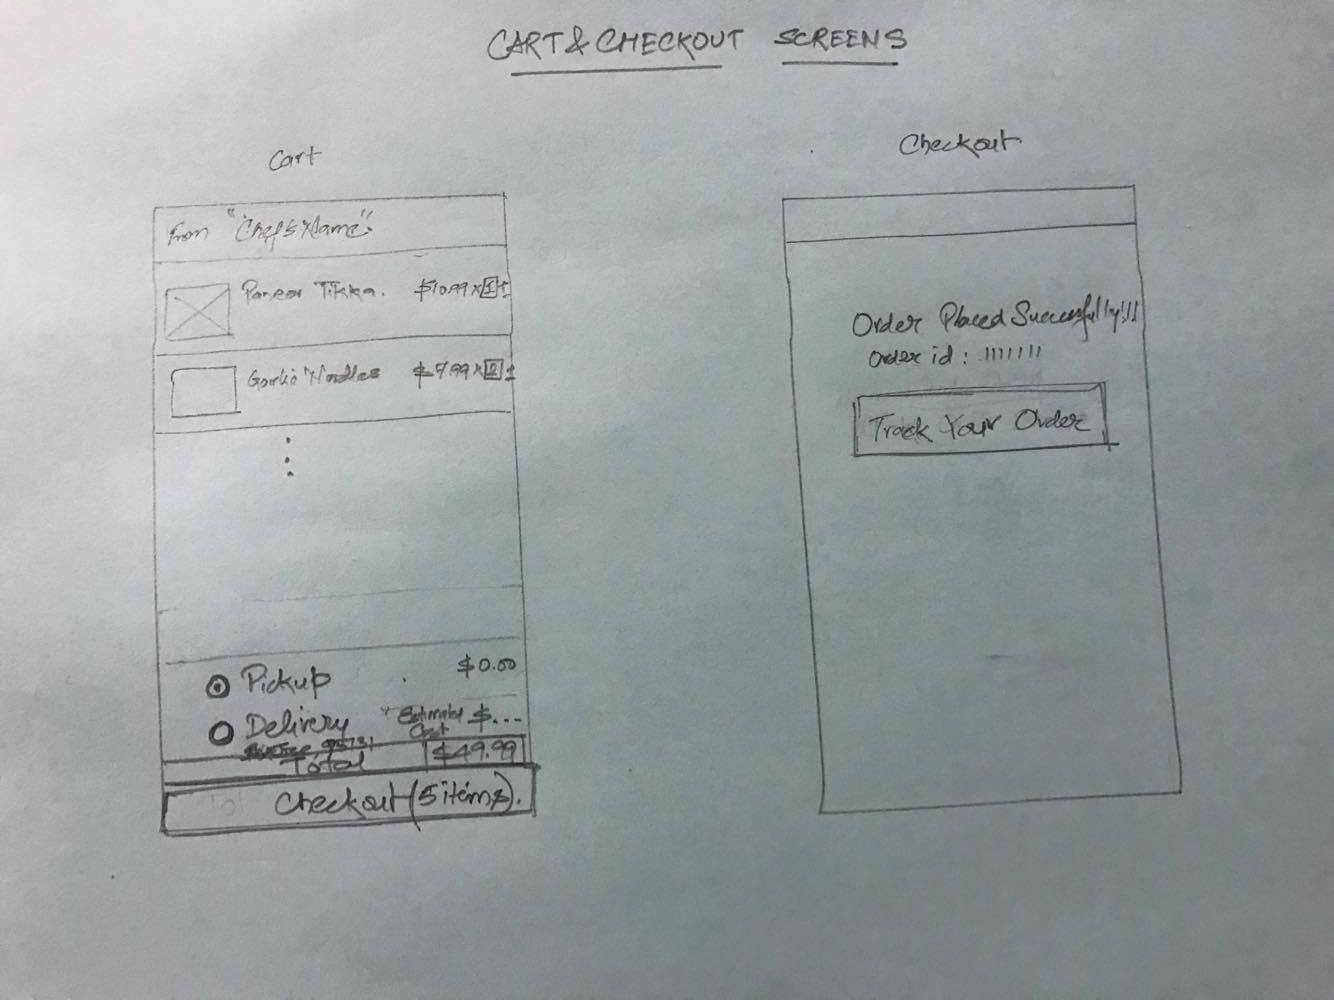 CART & CHECKOUT SCREENS
Cart
From "Chef's Name".
Paneer Tikka. $10.99 x 1 ±
Garlic Noodles $7.99 x 2 ±
Pickup $0.00
Delivery Estimated Cost $...
Total $49.99
Checkout (5 items).
Checkout
Order Placed Successfully!!!
Order id : 1111111
Track Your Order